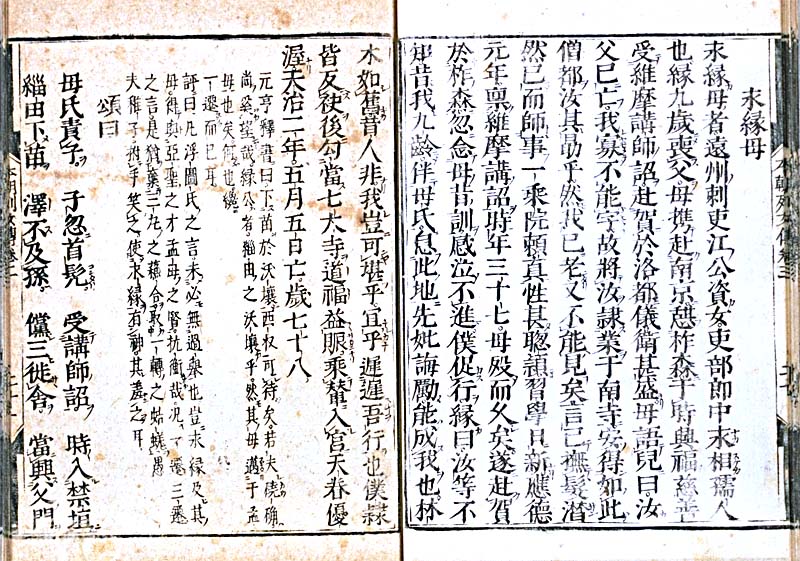 永縁母
永縁母者遠州刺吏江公資女吏部郎中永相孺人
也縁九歳喪父母携赴南京憩柞森于時興福慈善
受維摩講師詔赴賀於洛都儀衛甚盛母語兒曰汝
父已亡我寡不能字故將汝隷業于南寺安得如此
僧都汝其勗乎然我已老又不能見矣言已撫髮潜
然已而師事一乘院頼眞性甚聰頴習學日新應德
元年禀維摩講詔時年三十七母殁而久矣遂赴賀
於柞森忽念母昔訓感泣不進僕促行縁曰汝等不
知昔我九齡伴母氏息此地先妣誨勵能成我也林
木如舊昔人非我豈可堪乎宜乎遲遲吾行也僕隷
皆反袂後勾當七大寺道福益服乘輦入宮天眷優
渥天治二年五月五日亡歳七十八
元亨釋書曰下苗於沃壤西収可待矣若夫磽确
尚爲望哉縁公者緇田之沃壤乎然其母邁于孟
母也矣何也縁
一遷而已耳
評曰凡浮圖氏之言未必無過乘也豈永縁及其
母得與亞聖之才孟母之賢抗衡哉况一遷三遷
之言是猶棄三丸之合取一轉之蛣蜣愚
夫稚子拊手笑之使永縁有神其羞之耳
頌曰
母氏責子 子忽首髡 受講師詔 時入禁垣
緇田下苗 澤不及孫 儻三徙舎 當興父門